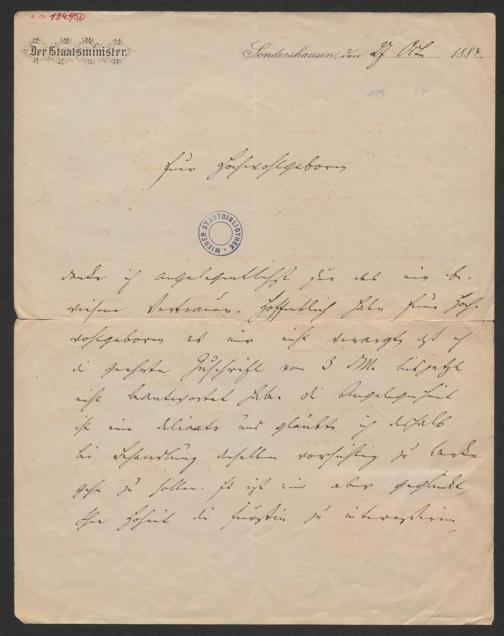 a. n. 194950
Der Staatsminister.
Sondershausen, den 27 Oct. 1884.
109
Euer Hochwohlgeboren
WIENER STADTBIBLIOTHEK
danke ich angelegentlichst für das mir be-
wiesene Vertrauen. Hoffentlich haben Euer Hoch-
wohlgeboren es mir nicht verargt, daß ich
die geehrte Zuschrift vom 3 d.M. bis jetzt
nicht beantwortet habe. Die Angelegenheit
ist eine delicate und glaubte ich deshalb
bei Behandlung derselben vorsichtig zu Werke
gehen zu sollen. Es ist mir aber geglückt,
Ihre Hoheit die Fürstin zu interessiren,